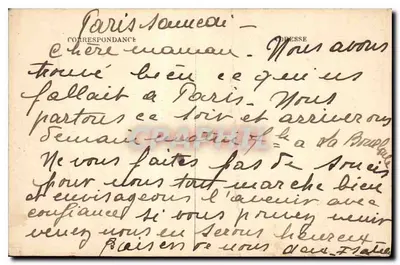 Paris samedi -
CORRESPONDANCE
ADRESSE
chère maman. Nous avons
trouvé bien ce qui ns
fallait à Paris. Nous
partons ce soir et arriverons
demain à la
Ne vous faites pas de soucis
pour nous tout marche bien
et envisageons l'avenir avec
confiance si vous pouvez venir
venez nous en serons heureux -
Baisers de nous deux -